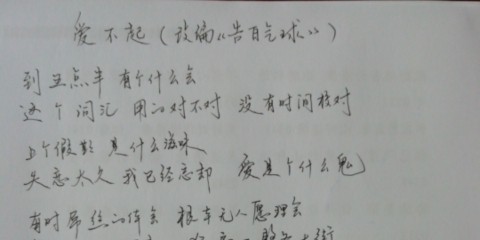 爱不起（改编《告白气球》）
到五点半 有个什么会
这个词汇 用的对不对 没有时间核对
上个假期 是什么滋味
失恋太久 我已经忘却 爱是个什么鬼
有时屌丝的体会 根本无人愿理会